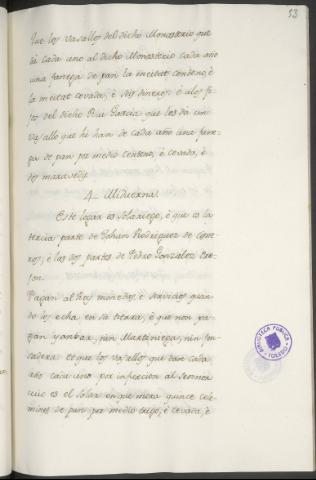 53
que los vasallos del dicho Monasterio que
dá cada uno al dicho Monasterio cada año
una fanega de pan la meitat centeno, è
la meitat cevada, è seis dineros: è à los fi-
jos del dicho Rui Garcia que les dà un
vasallo que hi han de cada año una fane-
ga de pan por medio centeno, è cevada, è
dos maravedis.
4 Miduerna.
Este logar es solariego, è que es la
tercia parte de Johan Rodriguez de Cisne-
ros, è las dos partes de Pedro Gonzalez
son.
Pagan al Rey monedas, è servicios quan-
do los echa en su tierra, è que non pa-
gan yantar, nin Martiniega, nin fon-
sadera: et que los vasallos que dan cada
año cada uno por infurcion al sennor
cuio es el solar en que mora quince cele-
mines de pan por medio trigo, è cevada, è
BIBLIOTECA PUBLICA
TOLEDO